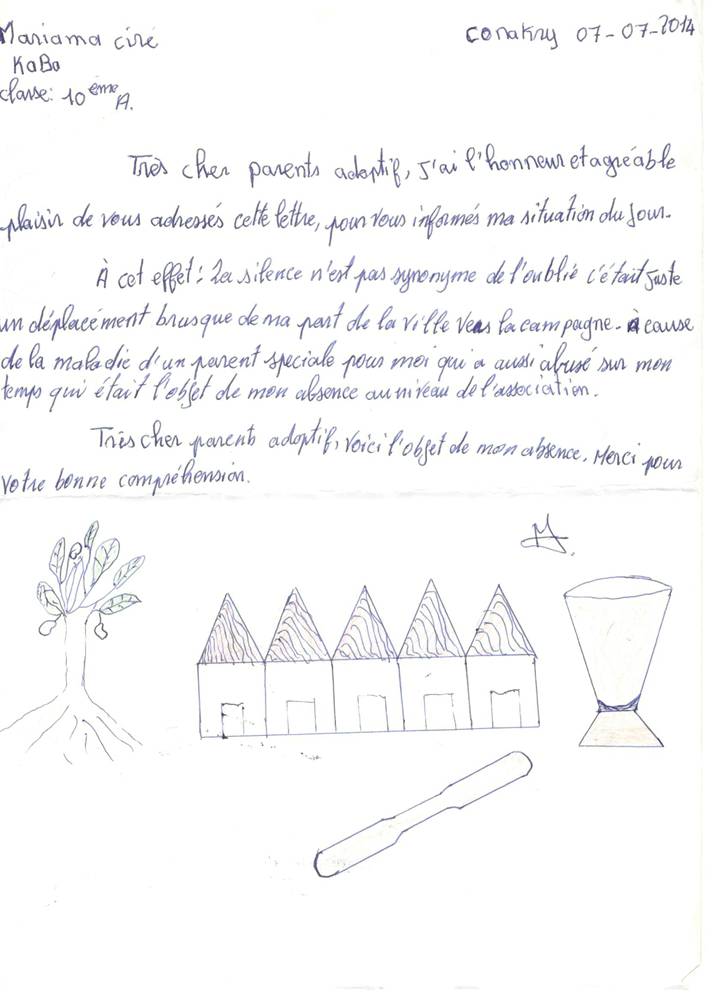 Mariama ciré
KaBa
classe: 10 ème A.
conakry 07-07-2014
Très cher parents adoptif, J'ai l'honneur et agréable
plaisir de vous adressés cette lettre, pour vous informés ma situation du Jour.
À cet effet: Le silence n'est pas synonyme de l'oublié c'était Juste
un déplacement brusque de ma part de la ville vers la campagne. à cause
de la maladie d'un parent speciale pour moi qui a aussi abusé sur mon
temps qui était l'objet de mon absence au niveau de l'association.
Très cher parents adoptif, voici l'objet de mon absence. Merci pour
votre bonne compréhension.